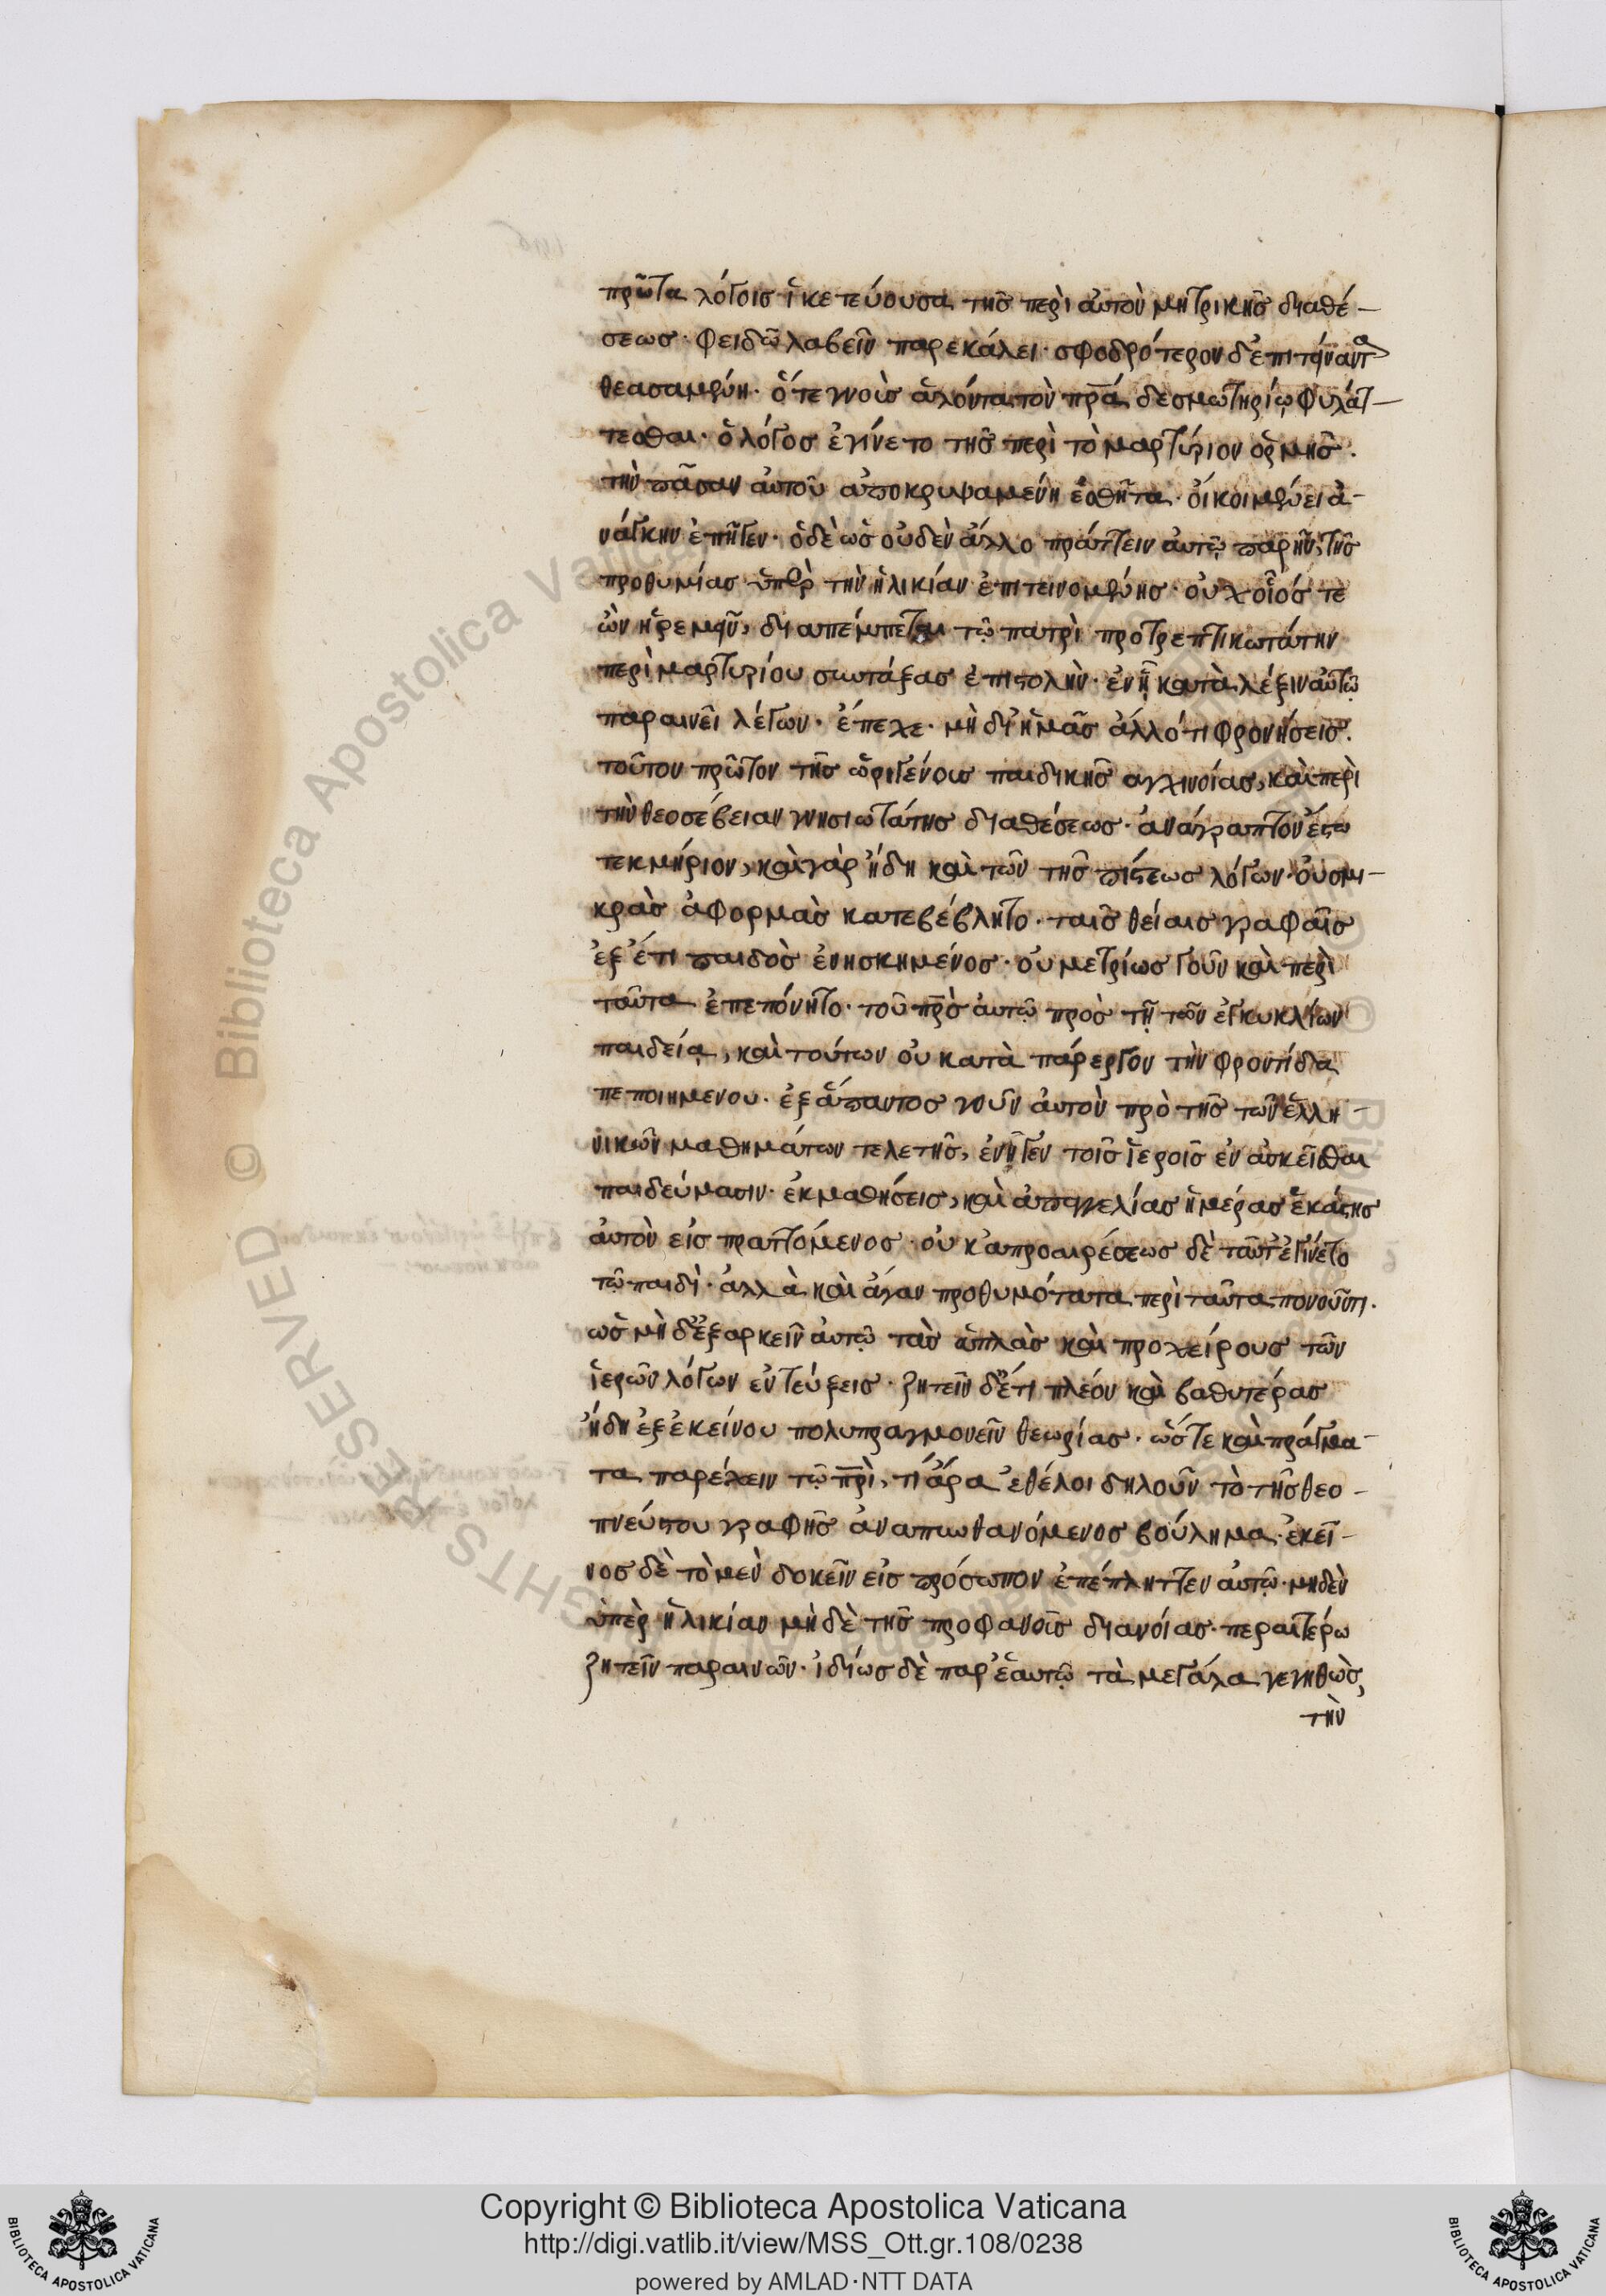 πρῶτα λόγοις ἱκετεύουσα τῆς περὶ αὐτὸν μητρικῆς διαθέ-
σεως· φειδῶ λαβεῖν παρεκάλει· σφοδρότερον δ' ἐπιτείναντα
θεασαμένη· ὅτε γνοὺς ἁλόντα τὸν πρα δεσμωτηρίῳ φυλάτ-
τεσθαι· ὅλος ἐγίνετο τῆς περὶ τὸ μαρτύριον ὁρμῆς·
τὴν πᾶσαν αὐτοῦ ἀποκρυψαμένη ἐσθῆτα· οἴκοι μένειν ἀ-
νάγκην ἐπῆγεν· ὁ δὲ ὡς οὐδὲν ἄλλο πράττειν αὐτῷ παρῆν, τῆς
προθυμίας ὑπὲρ τὴν ἡλικίαν ἐπιτεινομένης· οὐχ οἷός τε
ὢν ἠρεμεῖν, διαπέμπεται τῷ πατρὶ προτρεπτικωτάτην
περὶ μαρτυρίου συντάξας ἐπιστολὴν· ἐν ᾗ κατὰ λέξιν αὐτῷ
παραινεῖ λέγων· ἔπεχε· μὴ δι' ἡμᾶς ἄλλό τι φρονήσεις·
τοῦτον πρῶτον τῆς ὠριγένους παιδικῆς ἀγχινοίας, καὶ περὶ
τὴν θεοσέβειαν γνησιωτάτης διαθέσεως· ἀνάγραπτον ἔστω
τεκμήριον, καὶ γὰρ ἤδη καὶ τῶν τῆς πίστεως λόγων· οὐ σμι-
κρὰς ἀφορμὰς κατεβέβλητο· ταῖς θείαις γραφαῖς
ἐξ ἔτι παιδὸς ἐνησκημένος· οὐ μετρίως γοῦν καὶ περὶ
ταῦτα ἐπεπόνητο· τοῦ πρς αὐτῷ πρὸς τῇ τῶν ἐγκυκλίων
παιδείᾳ, καὶ τούτων οὐ κατὰ πάρεργον τὴν φροντίδα
πεποιημενου· ἐξ ἅπαντος γοῦν αὐτὸν πρὸ τῆς τῶν ἑλλη-
νικῶν μαθημάτων τελετῆς, ἐνῆγεν τοῖς ἱεροῖς ἐνασκεῖσθαι
παιδεύμασιν· ἐκμαθήσεις, καὶ ἀπαγγελίας ἡμέρας ἑκάστης
αὐτὸν εἰσπραττόμενος· οὐκ ἀπροαιρέσεως δὲ ταῦτ' ἐγίνετο
τῷ παιδὶ· ἀλλὰ καὶ ἄγαν προθυμότατα περὶ ταῦτα πονοῦντι·
ὡς μὴ δ' ἐξαρκεῖν αὐτῷ τὰς ἁπλὰς καὶ προχείρους τῶν
ἱερῶν λόγων ἐντεύξεις· ζητεῖν δ' ἔτι πλέον καὶ βαθυτέρας
ἤδη ἐξ ἐκείνου πολυπραγμονεῖν θεωρίας· ὥστε καὶ πράγμα-
τα παρέχειν τῷ πρὶ, τί ἄρα ἐθέλοι δηλοῦν τὸ τῆς θεο-
πνεύστου γραφῆς ἀναπυνθανόμενος βούλημα· ἐκεῖ-
νος δὲ τὸ μὲν δοκεῖν εἰς πρόσωπον ἐπέπληττεν αὐτῷ· μηδὲν
ὑπὲρ ἡλικίαν μὴ δὲ τῆς προφανοῦς διανοίας· περαιτέρω
ζητεῖν παραινῶν· ἰδίως δὲ παρ' ἑαυτῷ τὰ μεγάλα γεγηθὼς,
τὴν
Copyright © Biblioteca Apostolica Vaticana
http://digi.vatlib.it/view/MSS_Ott.gr.108/0238
powered by AMLAD·NTT DATA